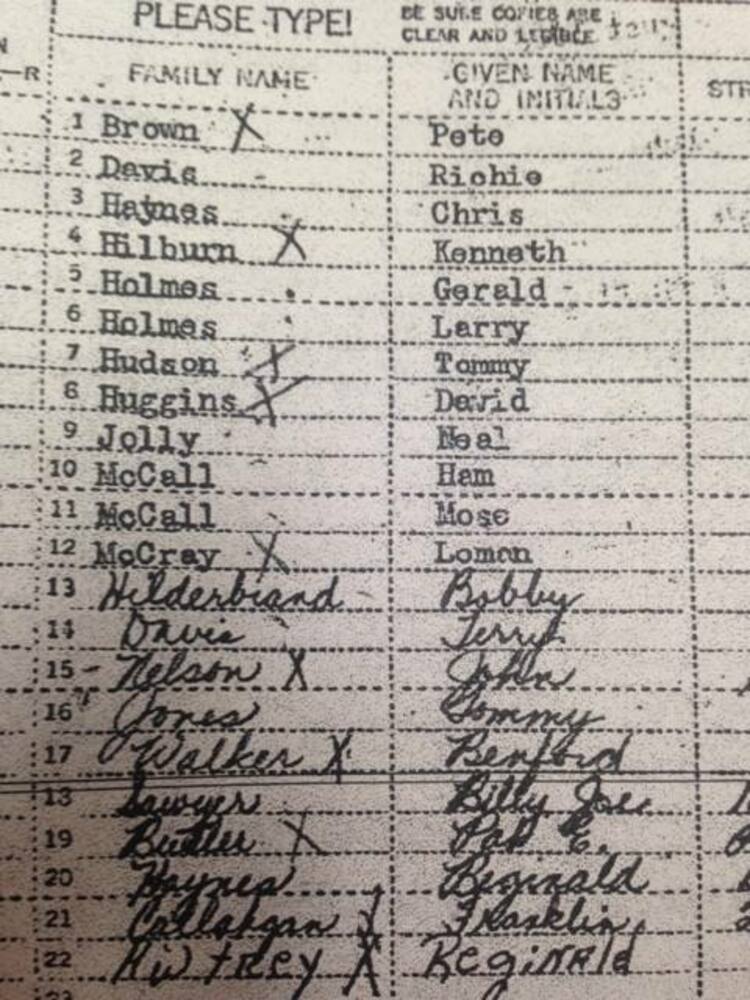 PLEASE TYPE! BE SURE COPIES ARE
CLEAR AND LEGIBLE
N
L-R FAMILY NAME GIVEN NAME STR
AND INITIALS
1 Brown X Pete
2 Davis Richie
3 Haynes Chris
4 Hilburn X Kenneth
5 Holmes Gerald
6 Holmes Larry
7 Hudson X Tommy
8 Huggins X David
9 Jolly Neal
10 McCall Ham
11 McCall Mose
12 McCray X Lomon
13 Hilderbrand Bobby
14 Davis Terry
15 - Nelson X John
16 Jones Tommy
17 Walker X Benford
18 Sawyer Billy Joe
19 Butler X Pat E.
20 Haynes Reginald
21 Callahgan X Franklin
22 X Reginald
23